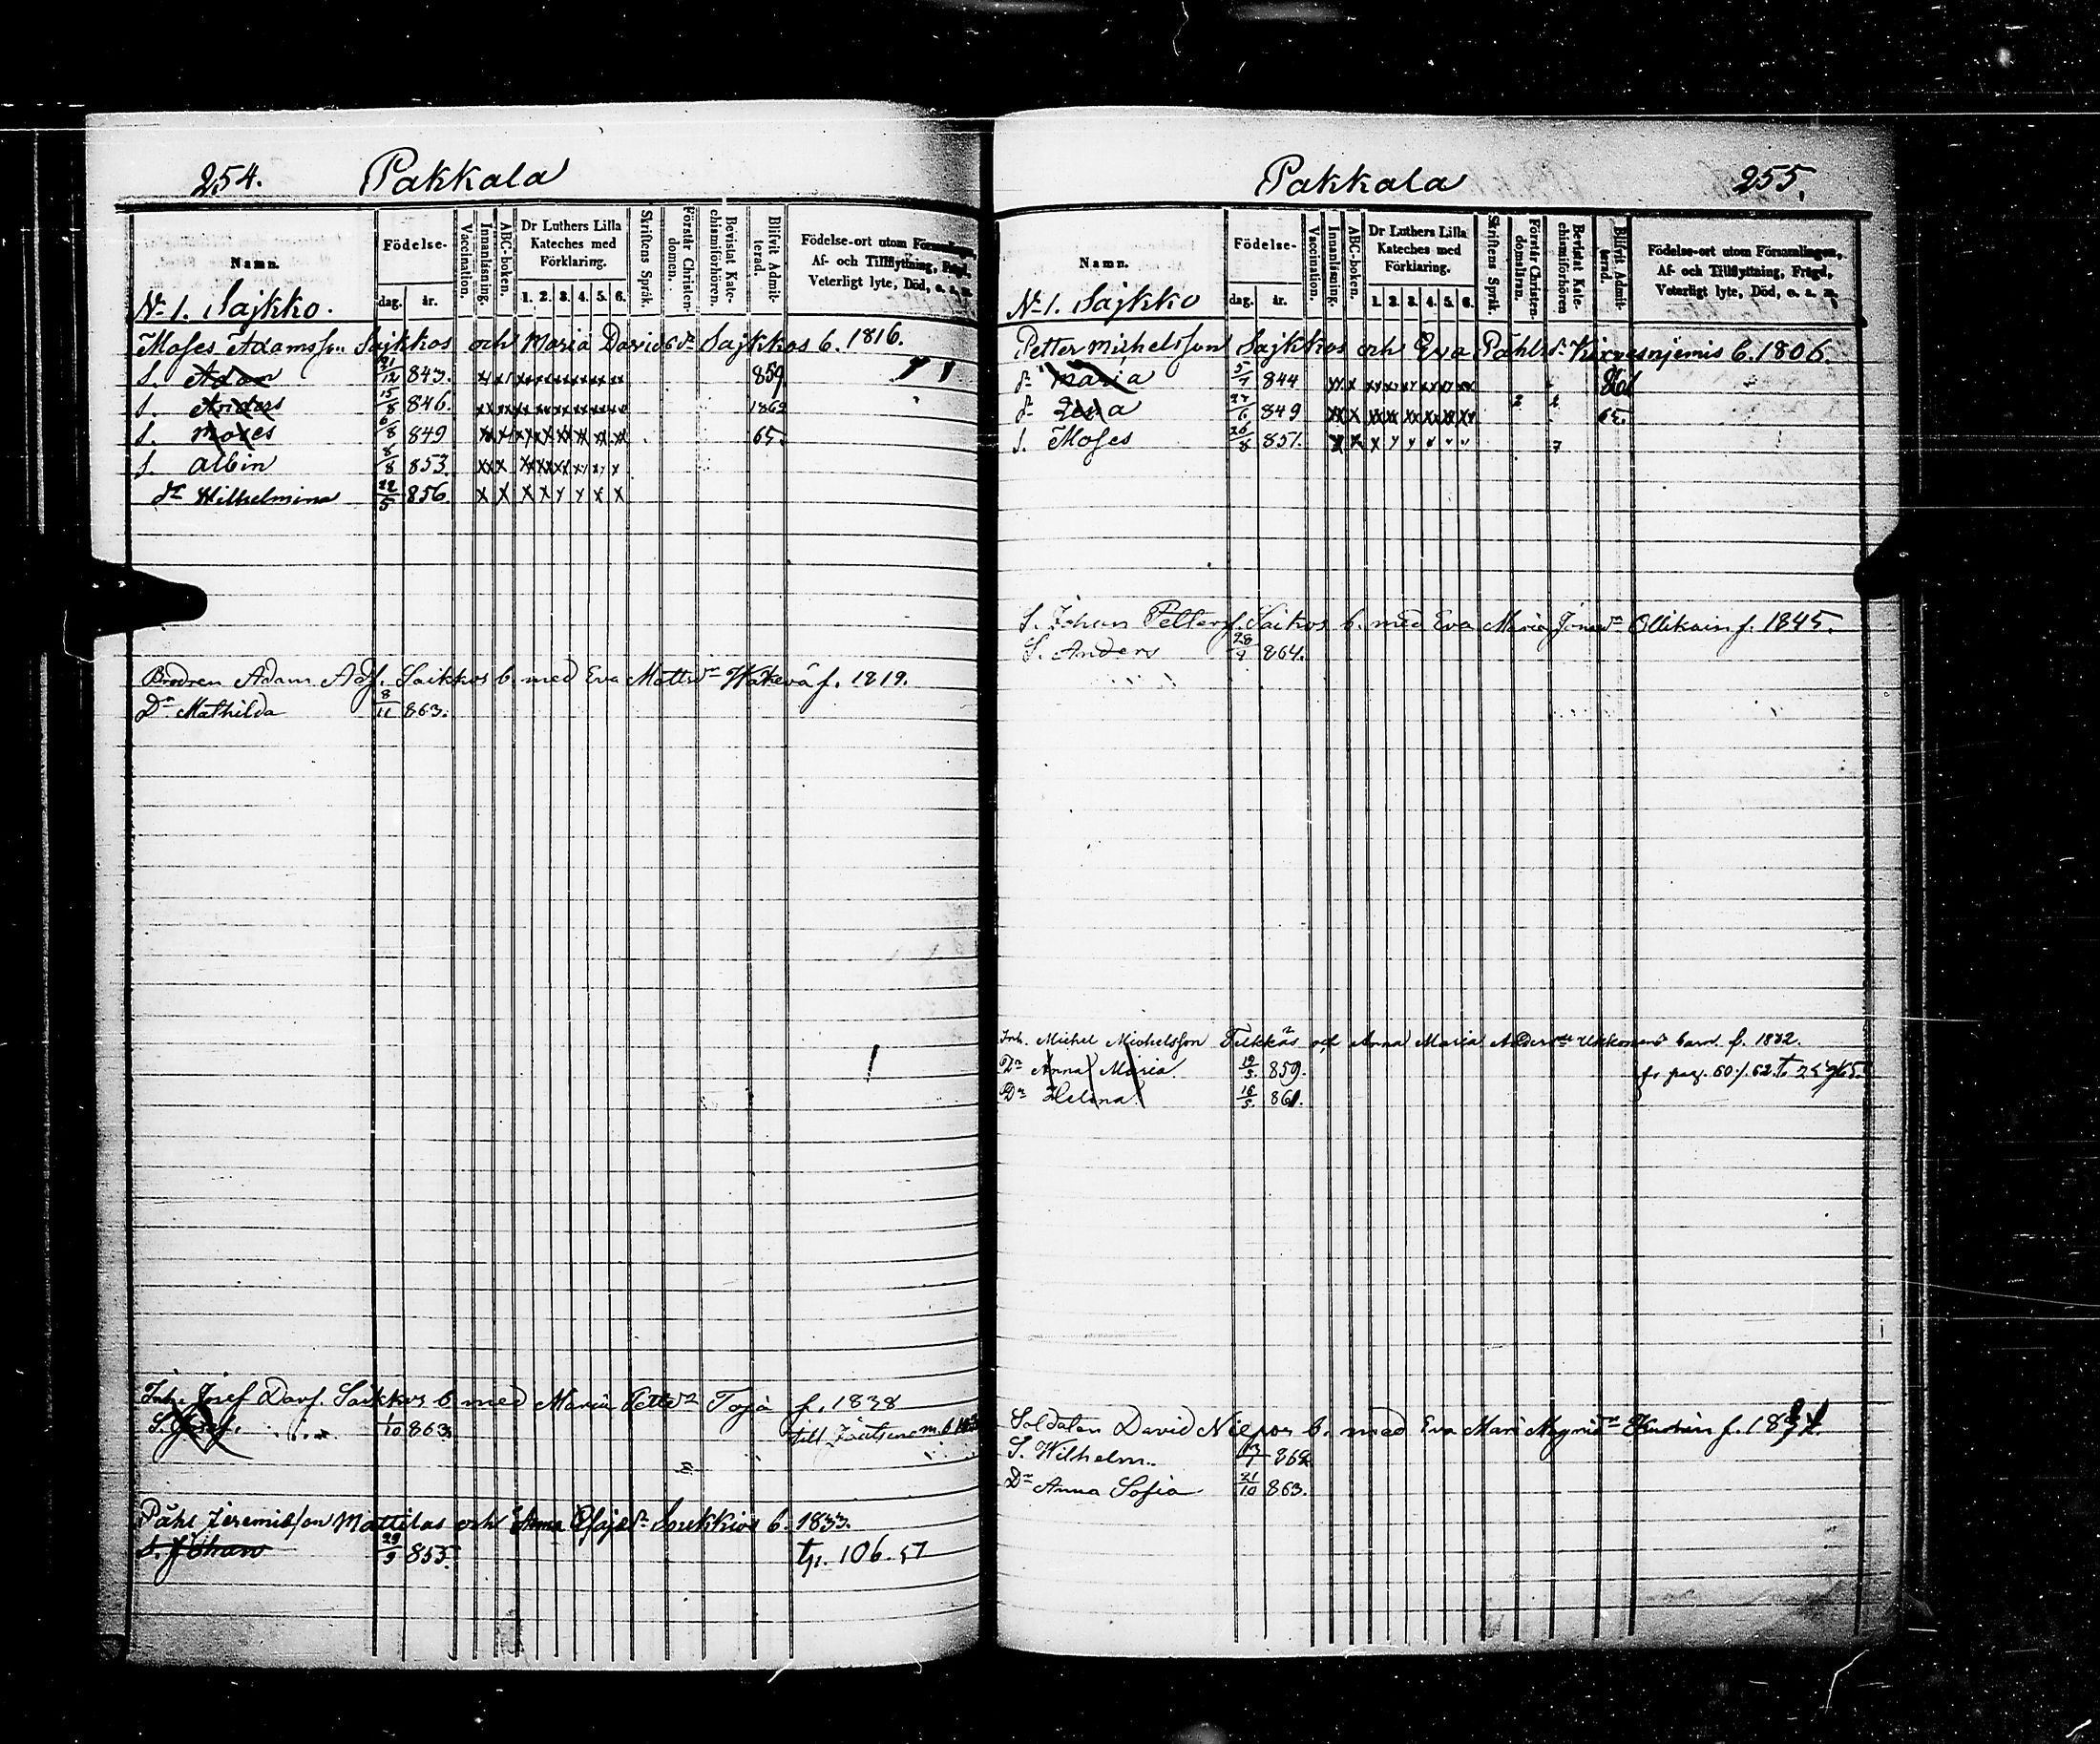 254. Pakkala
Namn.
Födelse-
dag. år.
Vaccination.
Innanläsning.
ABC-boken.
Dr Luthers Lilla Kateches med Förklaring.
1. 2. 3. 4. 5. 6.
Skriftens Språk.
Förstår Christendomen.
Bevistat Katechismiförhören.
Blifvit Admitterad.
Födelse-ort utom Församlingen,
Af- och Tillflyttning, Frägd,
Veterligt lyte, Död, o. s. m.
No 1. Sajkko.
Moses Adamsson Sajkkos och Maria Davidsdr Sajkkos b. 1816.
S. Adam 21/12 843. 859
S. Anders 15/8 846. 1862
S. Moses 6/8 849 65.
S. Albin 8/8 853.
dr Wilhelmina 22/5 856.
Brodren Adam Adf. Saikkos b. med Eva Mattsdr f. 1819.
Dr Mathilda 8/11 863.
Inh. Josef Davf. Saikkos b med Maria Pettdr f. 1838
S. Josef. 1/10 863. till
Påhl Jeremiasson Mattilas och Anna b. 1833.
S. Johan 29/9 855. tp. 106. 57
Pakkala 255.
Namn.
Födelse-
dag. år.
Vaccination.
Innanläsning.
ABC-boken.
Dr Luthers Lilla Kateches med Förklaring.
1. 2. 3. 4. 5. 6.
Skriftens Språk.
Förstår Christendomsläran.
Bevistat Katechismiförhören
Blifvit Admitterad.
Födelse-ort utom Församlingen,
Af- och Tillflyttning, Frägd,
Veterligt lyte, Död, o. s. m.
No 1. Sajkko
Petter Michelsson Sajkkos och Eva Påhlsdr Kirvesnjemis b. 1806.
dr Maria 5/7 844
dr Lena 27/6 849 65.
S. Moses 26/8 851.
S. Johan Petterf. Saikos b. med Eva Maria Jonasdr Ollikain f. 1845.
S. Anders 28/9 864.
Inh. Michel Michelsson och Anna Maria Andersdr Ukkonens barn f. 1832.
Dr Anna Maria 12/3. 859. fr pag. 60
Dr Helena 16/5. 861.
Soldaten David b. med Eva Mari
S. Wilhelm. 862
Dr Anna Sofia 21/10 863.